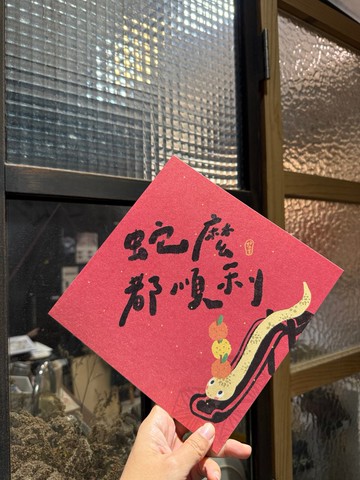 蛇麼
都順利